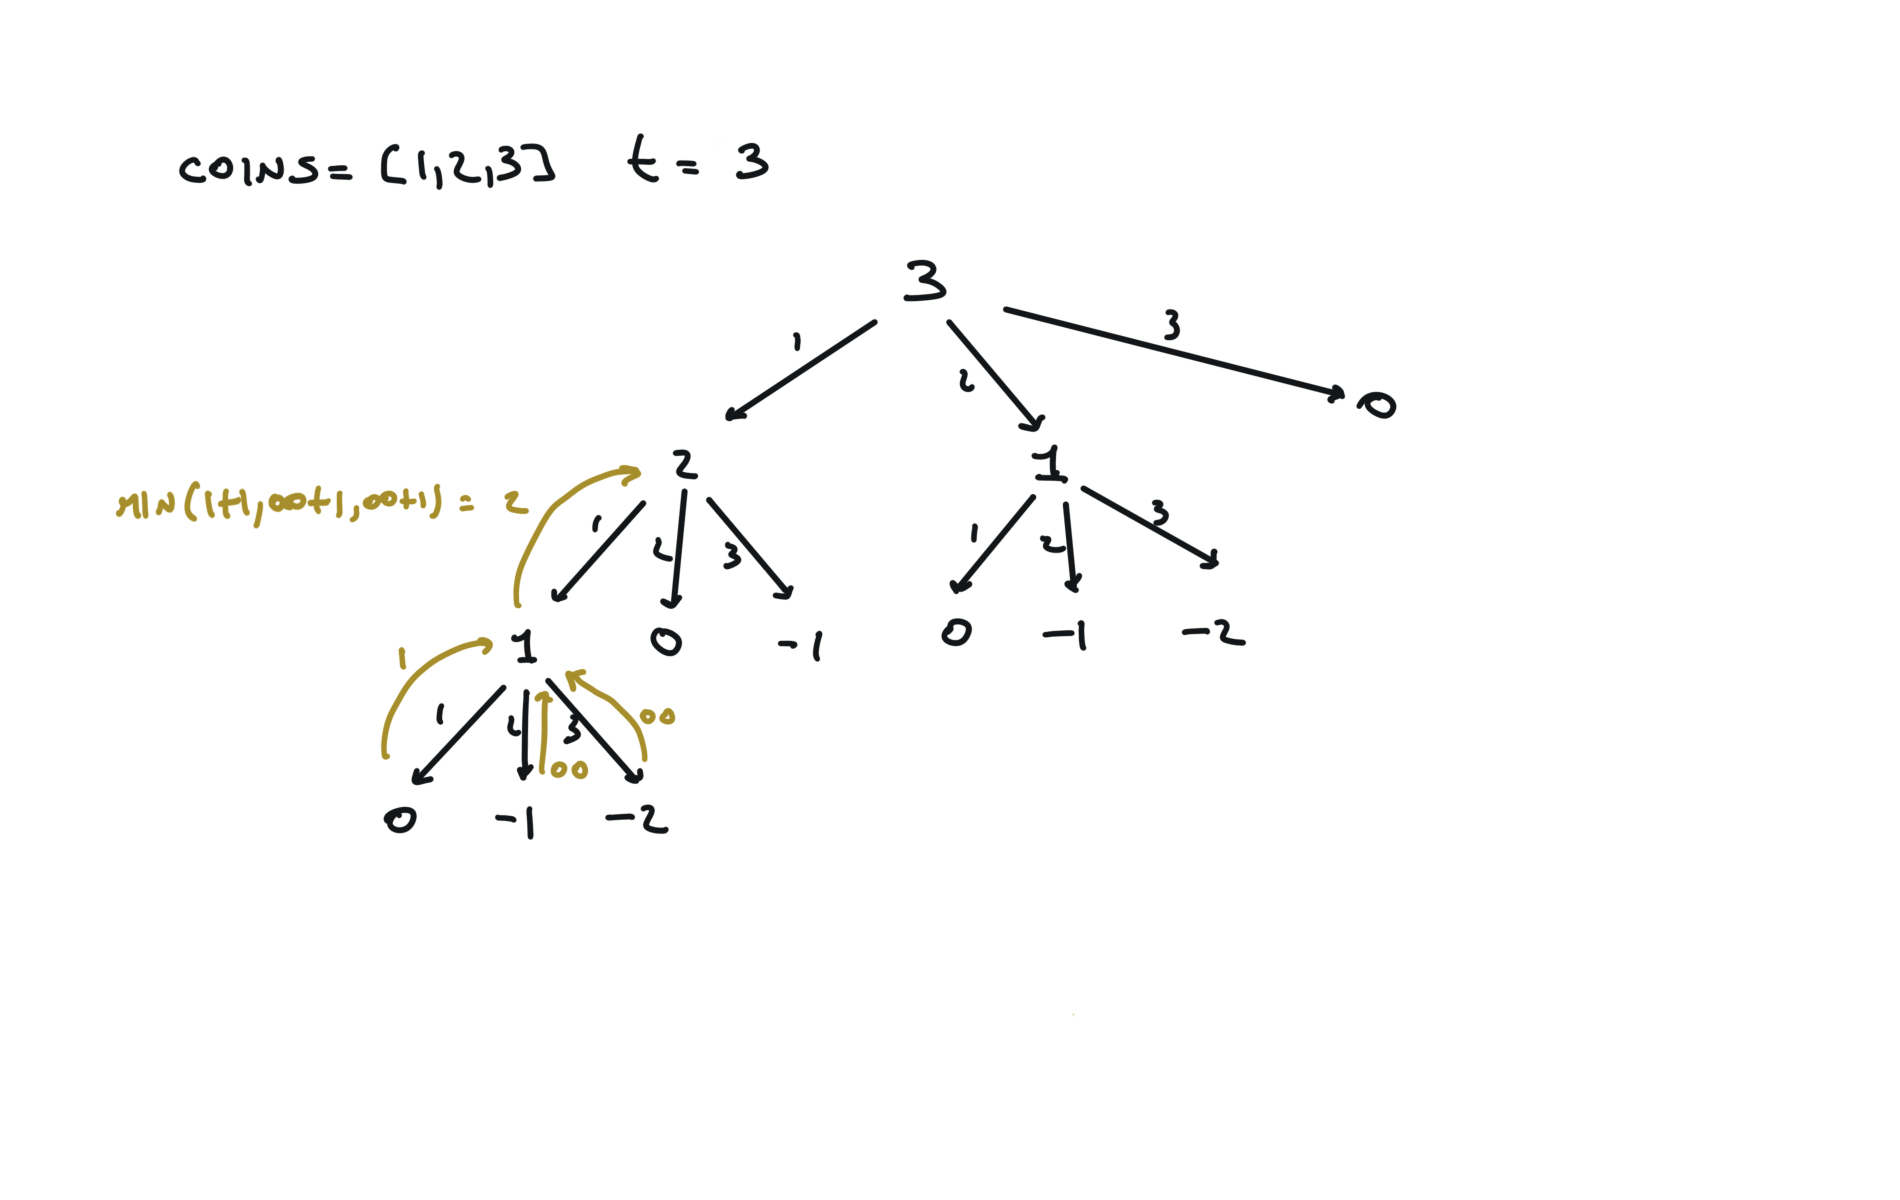 COINS= [1,2,3] t = 3
3
1 2 3
2 1 0
MIN(1+1,∞+1,∞+1) = 2
1 2 3 1 2 3
1 0 -1 0 -1 -2
1 1 2 3 ∞
∞
0 -1 -2